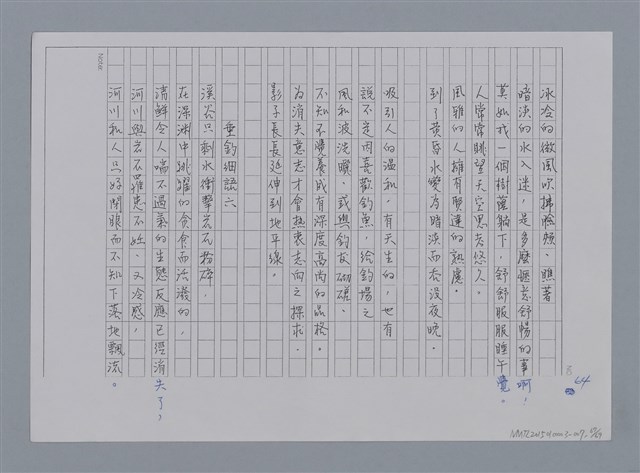 冰冷的微風吹拂臉頰、瞧著
暗淡的水入迷，是多麼愜意舒暢的事啊！
莫如找一個樹蔭躺下，舒舒服服睡午覺。
人常常眺望天空思考悠久。
風雅的人擁有賢達的熟慮。
到了黃昏水變為暗淡而吞沒夜晚。
吸引人的溫和，有天生的，也有
說不定因喜歡釣魚，給釣場之
風和波洗曬、或與釣友砌磋、
不知不覺養成有深度高尚的品格。
為消失意志才會熱衷志向之探求，
影子長長延伸到地平線。
垂釣細語六
溪谷只刺水衝擊岩石粉碎，
在深淵中跳躍的貪食而活潑的，
清鮮令人喘不過氣的生態反應已經消失了，
河川與岩石罹患不妊、又冷感，
河川和人只好閉眼而不知下落地飄流。
64